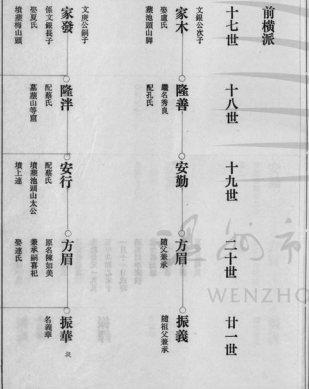 前横派
十七世
十八世
十九世
二十世
廿一世
文銀公次子
家木
娶盧氏
墓池頭山脚
隆善
繼名秀良
配孔氏
安勤
方眉
隨父兼承
振義
隨祖父兼承
文庚公嗣子
家發
係文銀長子
娶夏氏
墳 梅山頭
隆泮
配蔡氏
墓 山等窟
安行
配蔡氏
墳 池頭山太公
墳上邊
方眉
原名陳如美
兼承嗣喜祀
娶連氏
振華
名義華
溫州市
WENZHO